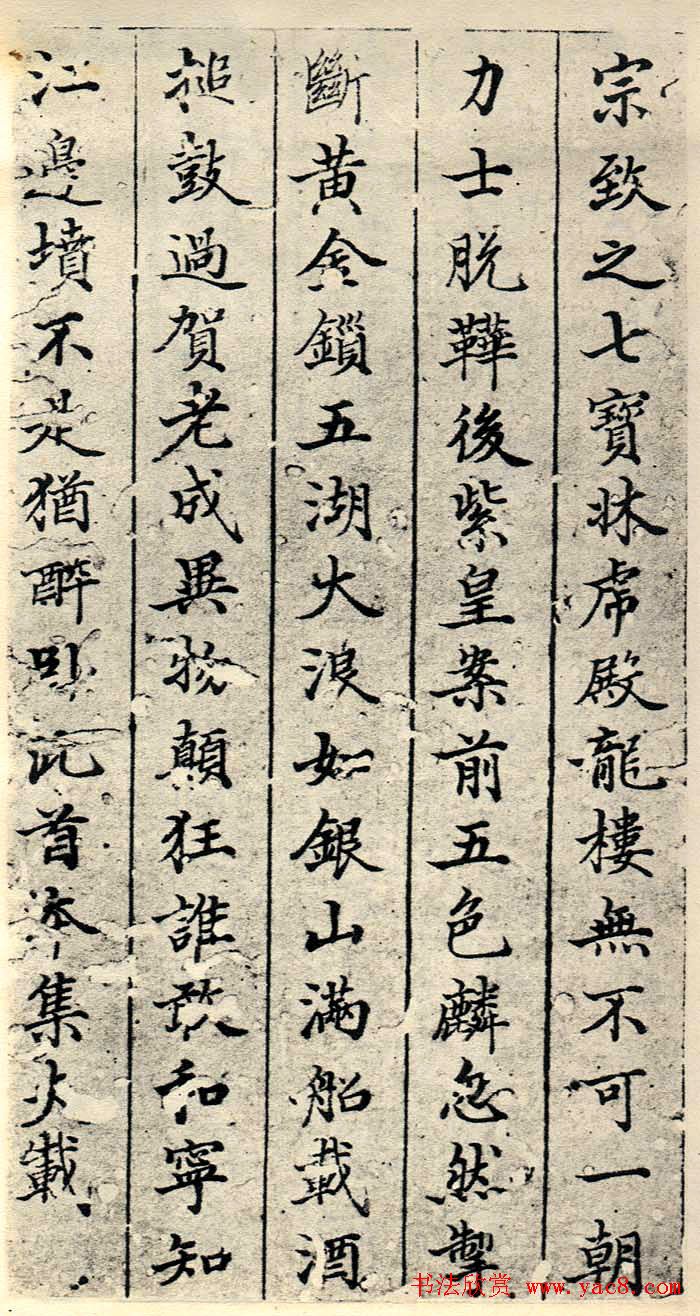 宗致之七寶牀虎殿龍樓無不可一朝
力士脱鞾後紫皇案前五色麟忽然掣
斷黄金鎖五湖大浪如銀山滿船載酒
搥鼓過賀老成異物顛狂誰敢和寧知
江邊墳不是猶醉卧此首本集載
书法欣赏 www.yac8.com